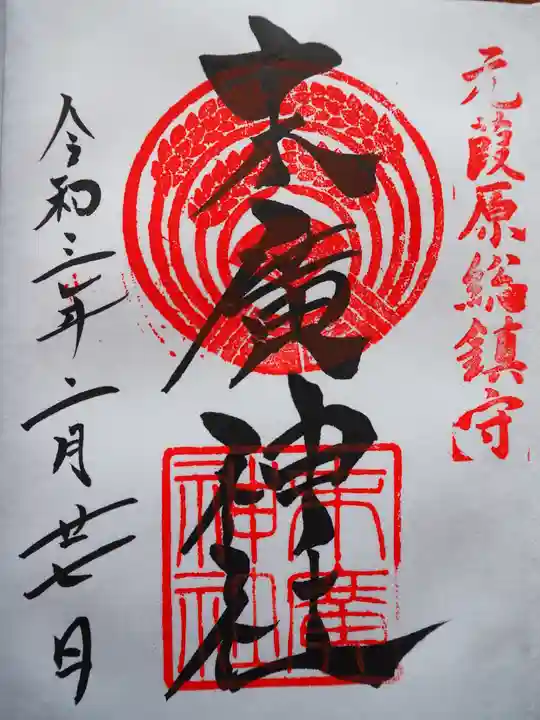 元葭原総鎮守
末廣神社
末廣神社
令和三年二月廿七日